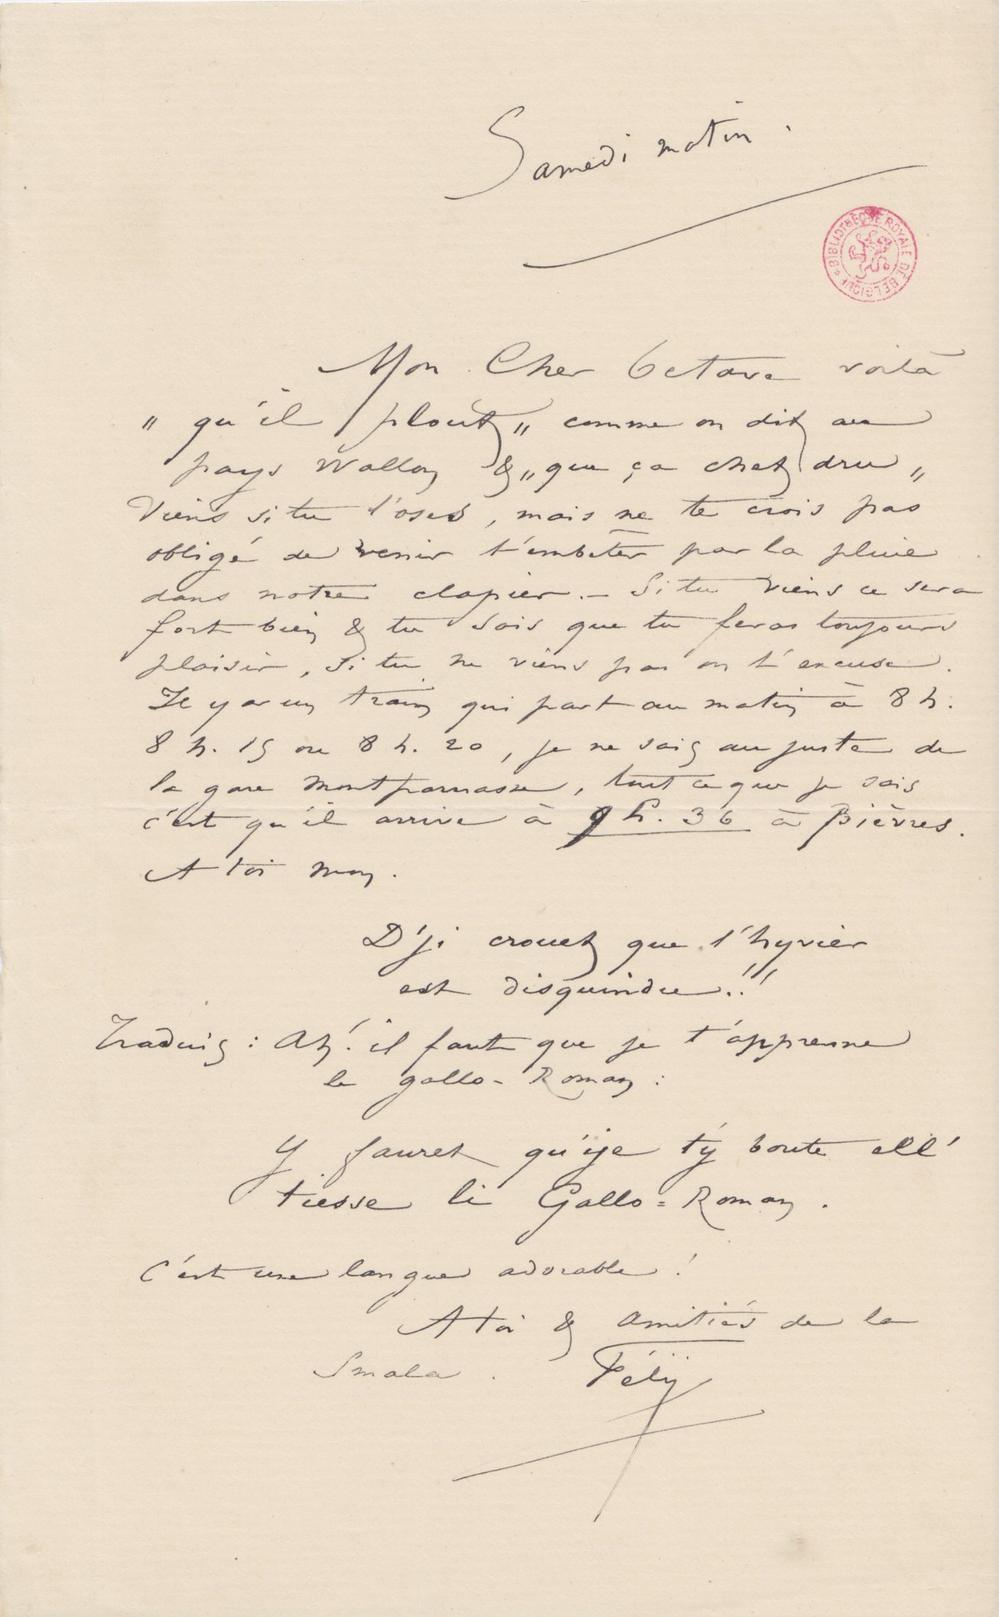 Samedi matin.
BIBLIOTHÈQUE ROYALE DE BELGIQUE
Mon Cher Octave voilà
" qu'il plout " comme on dit au
pays Wallon & " que ça chet dru "
Viens si tu l'oses, mais ne te crois pas
obligé de venir t'embêter par la pluie
dans notre clapier. – Si tu viens ce sera
fort bien & tu sais que tu feras toujours
plaisir, si tu ne viens pas on t'excuse.
Il y a un train qui part au matin à 8 h.
8 h. 15 ou 8 h. 20, je ne sais au juste de
la gare Montparnasse, tout ce que je sais
c'est qu'il arrive à 9 h. 36 à Bièvres.
A toi mon.
D'ji crouet que l'hyvier
est disquindu !!
Traduis : Ah! il faut que je t'apprenne
le gallo-Roman :
Y fauret qu'ije t'y boute ell'
tiesse li Gallo=Roman.
C'est une langue adorable !
A toi & amitiés de la
Smala. Fély